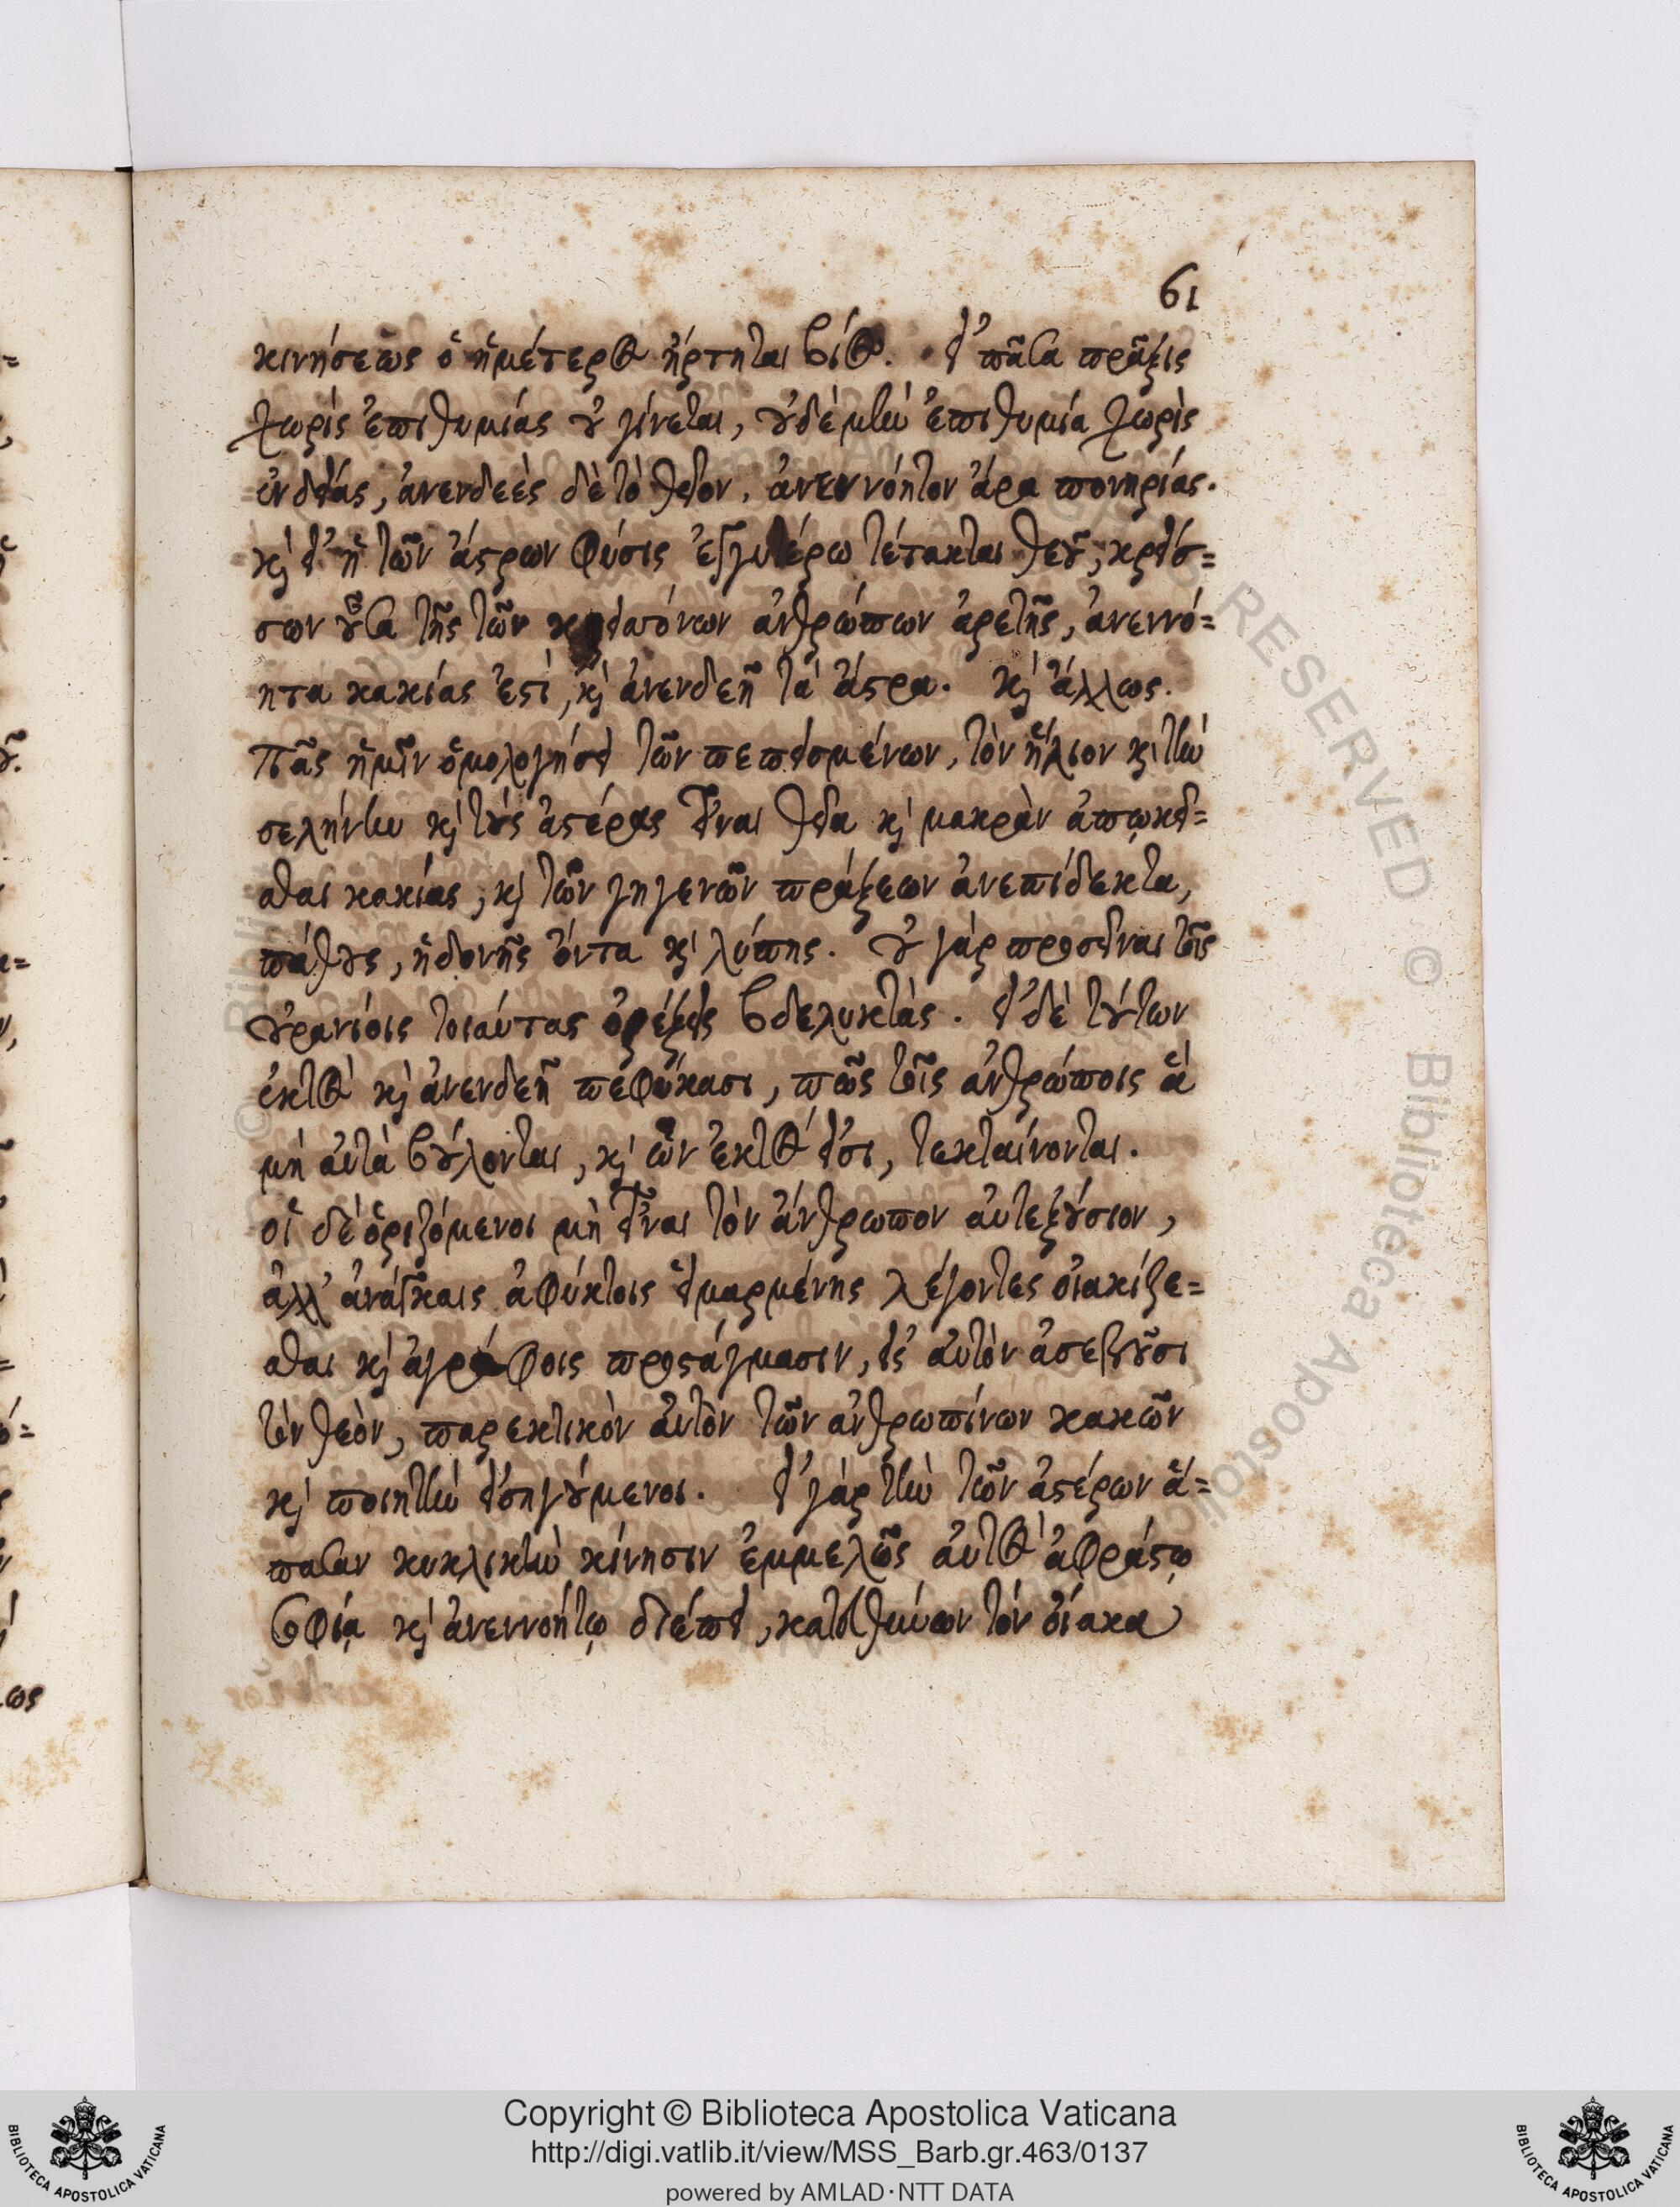 61
κινήσεως ὁ ἡμέτερος ἤρτηται βίος. εἰ πᾶσα πρᾶξις
χωρὶς ἐπιθυμίας οὐ γίνεται, οὐδὲ μὴν ἐπιθυμία χωρὶς
ἐνδείας, ἀνενδεὲς δὲ τὸ θεῖον, ἀνεννόητον ἄρα πονηρίας.
καὶ εἰ ἡ τῶν ἄστρων φύσις ἐγγυτέρω τέτακται θεοῦ, κρείσ=
σων οὖσα τῆς τῶν κρειττόνων ἀνθρώπων ἀρετῆς, ἀνεννό=
ητα κακίας ἐστί, καὶ ἀνενδεῆ τὰ ἄστρα. καὶ ἄλλως.
Πᾶς ἡμῖν ὁμολογήσει τῶν πεπεισμένων, τὸν ἥλιον καὶ τὴν
σελήνην καὶ τοὺς ἀστέρας εἶναι θεῖα καὶ μακρὰν ἀπῳκεῖ=
σθαι κακίας, καὶ τῶν γηγενῶν πράξεων ἀνεπίδεκτα,
πάθους, ἡδονῆς ὄντα καὶ λύπης. οὐ γὰρ προσεῖναι τοῖς
οὐρανίοις τοιαύτας ὀρέξεις βδελυκτάς. εἰ δὲ τούτων
ἐκτὸς καὶ ἀνενδεῆ πεφύκασι, πῶς τοῖς ἀνθρώποις ἃ
μὴ αὐτὰ βούλονται, καὶ ὧν ἐκτὸς εἰσι, τεκταίνονται.
οἱ δὲ ὁριζόμενοι μὴ εἶναι τὸν ἄνθρωπον αὐτεξούσιον,
ἀλλ' ἀνάγκαις ἀφύκτοις εἱμαρμένης λέγοντες οἰακίζε=
σθαι καὶ ἀγράφοις προστάγμασιν, εἰς αὐτὸν ἀσεβοῦσι
τὸν θεὸν, παρεκτικὸν αὐτὸν τῶν ἀνθρωπίνων κακῶν
καὶ ποιητὴν εἰσηγούμενοι. εἰ γὰρ τὴν τῶν ἀστέρων ἅ=
πασαν κυκλικὴν κίνησιν ἐμμελῶς αὐτὸς ἀφράστῳ
σοφίᾳ καὶ ἀνεννοήτῳ διέπει, κατευθύνων τὸν οἴακα
Copyright © Biblioteca Apostolica Vaticana
http://digi.vatlib.it/view/MSS_Barb.gr.463/0137
powered by AMLAD·NTT DATA